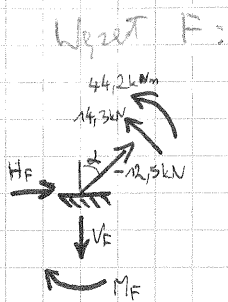 Węzeł F:
44,2kNm
14,3kN
α
H_F
-12,5kN
V_F
M_F